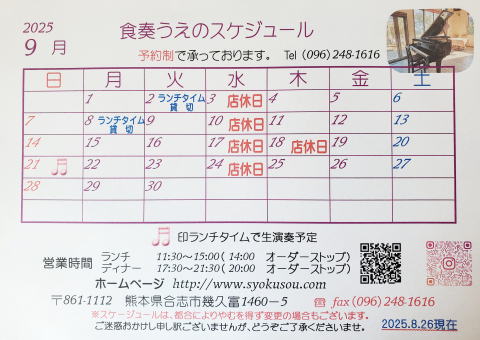 2025
9 月
食奏うえのスケジュール
予約制で承っております。 Tel (096) 248-1616
日 月 火 水 木 金 土
1 2 ランチタイム貸切 3 店休日 4 5 6
7 8 ランチタイム貸切 9 10 店休日 11 12 13
14 15 16 17 店休日 18 店休日 19 20
21 22 23 24 店休日 25 26 27
28 29 30
印ランチタイムで生演奏予定
営業時間 ランチ 11:30~15:00 ( 14:00 オーダーストップ)
ディナー 17:30~21:30 ( 20:00 オーダーストップ)
ホームページ http://www.syokusou.com/
〒861-1112 熊本県合志市幾久富1460-5 fax (096) 248-1616
※スケジュールは、都合によりやむを得ず変更の場合もございます。
ご迷惑おかけし申し訳ございませんが、どうぞご了承くださいませ。
2025.8.26現在